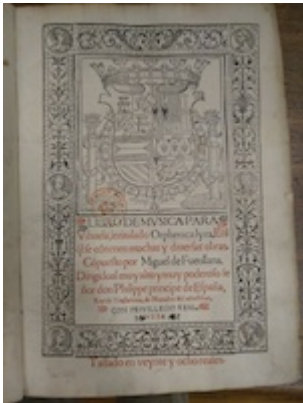 LIBRO DE MVSICA PARA
Vihuela, intitulado Orphenica lyra. En
el q̃ se cõtienen muchas y diuersas obras.
Cõpuesto por Miguel de Fuenllana.
Dirigido al muy alto y muy poderoso se
ñor don Philippe principe de España,
CON PRIVILEGIO REAL.
Tassado en veynte y ocho reales.